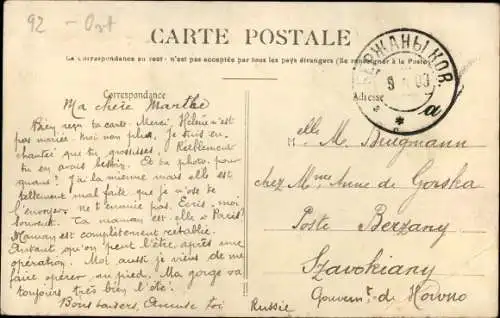 92 - Ost
CARTE POSTALE
La Correspondance au recto n'est pas acceptée par tous les pays étrangers (Se renseigner à la Poste)
Correspondance
Adresse
ЖАНЫ КОВ
9
Ma chère Marthe
Bien reçu ta carte. Merci. Hélène n'est
pas mariée. Moi non plus. Je suis en-
chantée que tu grossisses. Réellement
tu en avais besoin. Et ta photo. pour
quand? J'ai la mienne mais elle est
tellement mal faite que je n'ose de
l'envoyer. ne t'ennuie pas. Ecris. moi
souvent. Ta maman est-elle à Paris?
Maman est complètement rétablie.
Autant qu'on peut l'être, après une
opération. Moi aussi je viens de me
faire opérer au pied. Ma gorge va
toujours très bien l'été.
Bons baisers, Amuse toi
elle M. Brugmann
chez Mme Anne de Gorska
Poste Berzany
Szavokiany
Gouvernt de Kowno
Russie